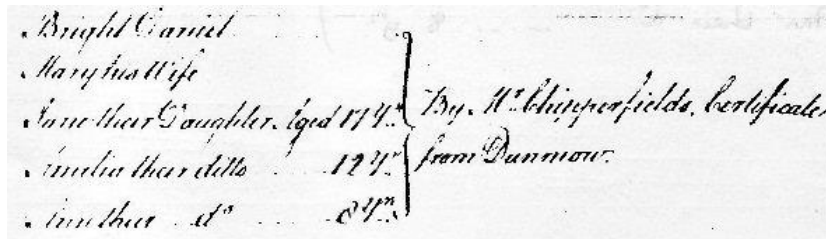 Bright Daniel
Mary his Wife
Jane their Daughter Aged 17 Yrs
Amelia their ditto 12 Yrs
Ann their do 8 Yrs
By Mr. Chipperfields Certificate
from Dunmow.